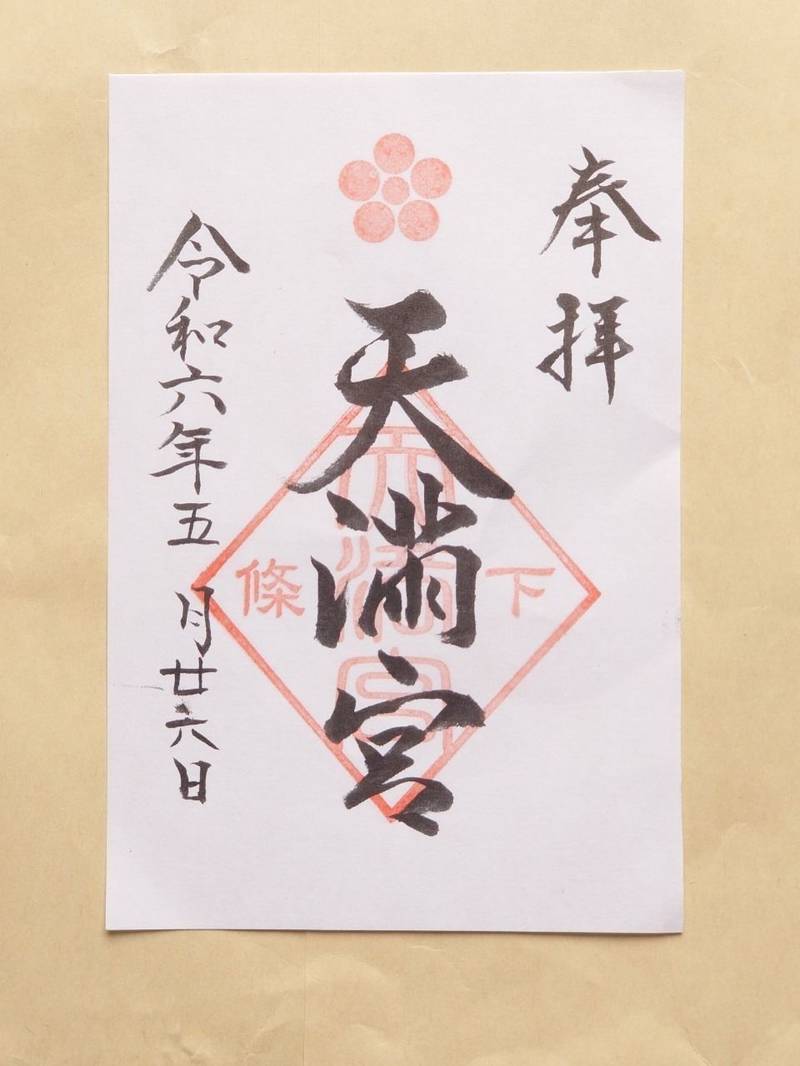 奉拝
天満宮
下條
天満宮
令和六年五月廿六日